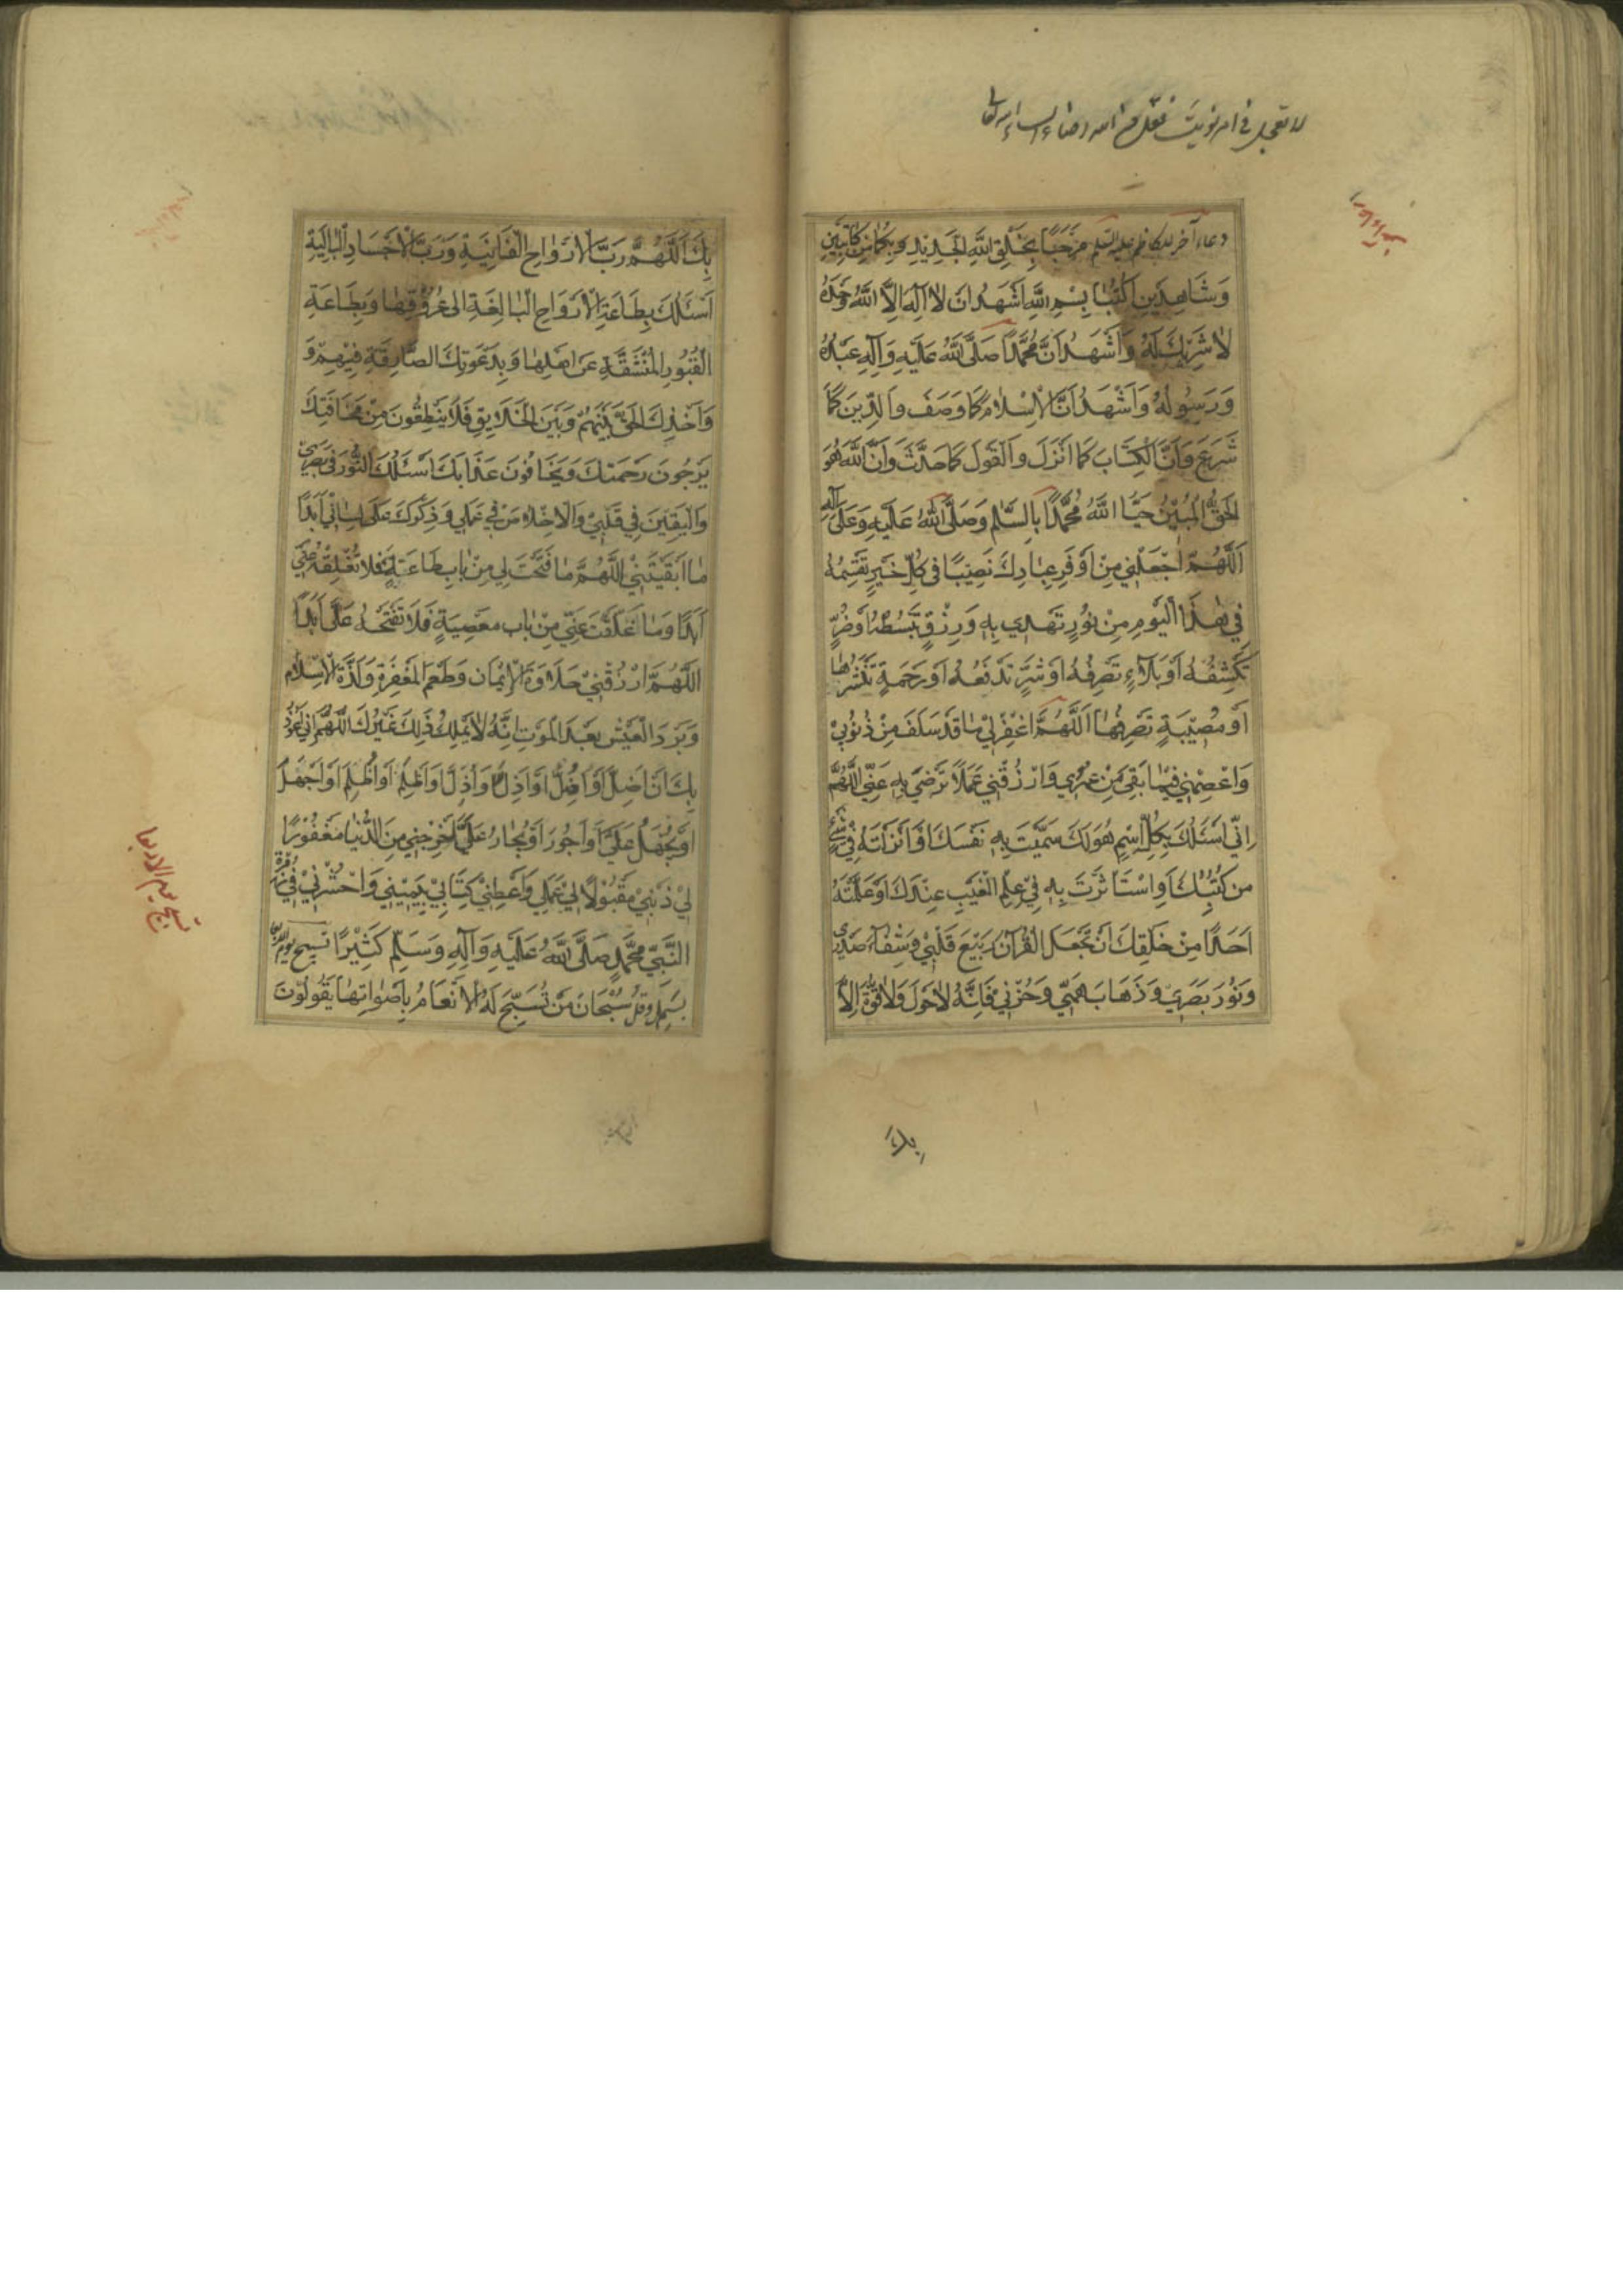 دعاء آخر للكاظم عليه السلم مَرْحَبًا بِخَلْقِ اللهِ الْجَدِيدِ وَبِكُمَا مِنْ كَاتِبَيْنِ
وَشَاهِدَيْنِ اُكْتُبَا بِسْمِ اللهِ اَشْهَدُ اَنْ لَا اِلٰهَ اِلَّا اللهُ وَحْدَهُ
لَا شَرِيكَ لَهُ وَاَشْهَدُ اَنَّ مُحَمَّدًا صَلَّى اللهُ عَلَيْهِ وَآلِهِ عَبْدُهُ
وَرَسُولُهُ وَاَشْهَدُ اَنَّ الْاِسْلَامَ كَمَا وَصَفَ وَالدِّينَ كَمَا
شَرَعَ وَاَنَّ الْكِتَابَ كَمَا اَنْزَلَ وَالْقَوْلَ كَمَا حَدَّثَ وَاَنَّ اللهَ هُوَ
الْحَقُّ الْمُبِيْنُ حَيَّا اللهُ مُحَمَّدًا بِالسَّلَمِ وَصَلَّى اللهُ عَلَيْهِ وَعَلَى آلِهِ
اَللّٰهُمَّ اجْعَلْنِي مِنْ اَوْفَرِ عِبَادِكَ نَصِيْبًا فِي كُلِّ خَيْرٍ تَقْسِمُهُ
فِي هٰذَا الْيَوْمِ مِنْ نُوْرٍ تَهْدِي بِهِ وَرِزْقٍ تَبْسُطُهُ اَوْ ضُرٍّ
تَكْشِفُهُ اَوْ بَلَآءٍ تَصْرِفُهُ اَوْ شَرٍّ تَدْفَعُهُ اَوْ رَحْمَةٍ تَنْشُرُهَا
اَوْ مُصِيْبَةٍ تَصْرِفُهَا اَللّٰهُمَّ اغْفِرْ لِيْ مَا قَدْ سَلَفَ مِنْ ذُنُوْبِيْ
وَاعْصِمْنِي فِيْمَا بَقِيَ مِنْ عُمْرِي وَارْزُقْنِي عَمَلًا تَرْضَى بِهِ عَنِّي اَللّٰهُمَّ
اِنِّي اَسْئَلُكَ بِكُلِّ اسْمٍ هُوَ لَكَ سَمَّيْتَ بِهِ نَفْسَكَ اَوْ اَنْزَلْتَهُ فِيْ شَيْءٍ
مِنْ كُتُبِكَ اَوِ اسْتَأْثَرْتَ بِهِ فِيْ عِلْمِ الْغَيْبِ عِنْدَكَ اَوْ عَلَّمْتَهُ
اَحَدًا مِنْ خَلْقِكَ اَنْ تَجْعَلَ الْقُرْآنَ رَبِيْعَ قَلْبِيْ وَشِفَآءَ صَدْرِي
وَنُوْرَ بَصَرِيْ وَذَهَابَ هَمِّيْ وَحُزْنِيْ فَاِنَّهُ لَا حَوْلَ وَلَا قُوَّةَ اِلَّا
بِكَ اَللّٰهُمَّ رَبَّ الْاَرْوَاحِ الْفَانِيَةِ وَرَبَّ الْاَجْسَادِ الْبَالِيَةِ
اَسْئَلُكَ بِطَاعَةِ الْاَرْوَاحِ الْبَالِغَةِ اِلَى عُرُوْقِهَا وَبِطَاعَةِ
الْقُبُوْرِ الْمُنْشَقَّةِ عَنْ اَهْلِهَا وَبِدَعْوَتِكَ الصَّادِقَةِ فِيْهِمْ وَ
وَاَخْذِكَ الْحَقَّ بَيْنَهُمْ وَبَيْنَ الْخَلَايِقِ فَلَا يَنْطِقُوْنَ مِنْ مَخَافَتِكَ
يَرْجُوْنَ رَحْمَتَكَ وَيَخَافُوْنَ عَذَابَكَ اَسْئَلُكَ النُّوْرَ فِي بَصَرِيْ
وَالْيَقِيْنَ فِي قَلْبِيْ وَالْاِخْلَاصَ فِيْ عَمَلِي وَذِكْرَكَ عَلَى لِسَانِيْ اَبَدًا
مَا اَبْقَيْتَنِيْ اَللّٰهُمَّ مَا فَتَحْتَ لِي مِنْ بَابِ طَاعَةٍ فَلَا تُغْلِقْهُ عَنِّيْ
اَبَدًا وَمَا غَلَّقْتَ عَنِّيْ مِنْ بَابِ مَعْصِيَةٍ فَلَا تَفْتَحْهُ عَلَيَّ اَبَدًا
اَللّٰهُمَّ ارْزُقْنِيْ حَلَاوَةَ الْاِيْمَانِ وَطَعْمَ الْمَغْفِرَةِ وَلَذَّةَ الْاِسْلَامِ
وَبَرْدَ الْعَيْشِ بَعْدَ الْمَوْتِ اِنَّهُ لَا يَمْلِكُ ذٰلِكَ غَيْرُكَ اَللّٰهُمَّ اِنِّي اَعُوْذُ
بِكَ اَنْ اَضِلَّ اَوْ اُضِلَّ اَوْ اَذِلَّ وَاُذِلَّ وَاَظْلِمَ اَوْ اُظْلَمَ اَوْ اَجْهَلَ
اَوْ يُجْهَلَ عَلَيَّ اَوْ اَجُوْرَ اَوْ يُجَارَ عَلَيَّ اَخْرِجْنِي مِنَ الدُّنْيَا مَغْفُوْرًا
لِيْ ذَنْبِيْ مَقْبُوْلًا لِيْ عَمَلِي وَاَعْطِنِيْ كِتَابِيْ بِيَمِيْنِي وَاحْشُرْنِيْ فِيْ زُمْرَةِ
النَّبِيِّ مُحَمَّدٍ صَلَّى اللهُ عَلَيْهِ وَآلِهِ وَسَلَّمَ كَثِيْرًا تسبيح يوم
بَسْمِلْ وَقُلْ سُبْحَانَ مَنْ تُسَبِّحُ لَهُ الْاَنْعَامُ بِاَصْوَاتِهَا يَقُوْلُوْنَ
تسبيح يوم الاربعا